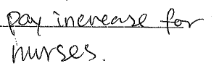 pay increase for
nurses.